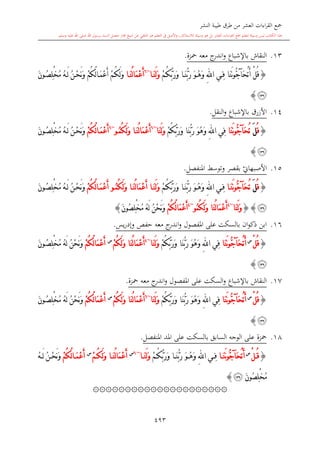 جمع القراءات العشر من طرق طيبة النشر
١٣. النقاش بالإشباع واندرج معه حمزة.
﴿ قُلْ أَتُحَآجُّونَنَا فِي اللهِ وَهُوَ رَبُّنَا وَرَبُّكُمْ وَلَنَا أَعْمَالُنَا وَلَكُمْ أَعْمَالُكُمْ وَنَحْنُ لَهُ مُخْلِصُونَ
﴿١٣٩﴾ ﴾
١٤. الأزرق بالإشباع والنقل.
﴿ قُلَ اتُحَآجُّونَنَا فِي اللهِ وَهُوَ رَبُّنَا وَرَبُّكُمْ وَلَنَا أَعْمَالُنَا وَلَكُمُو أَعْمَالُكُمْ وَنَحْنُ لَهُ مُخْلِصُونَ
﴿١٣٩﴾ ﴾
١٥. الأصبهاني بقصر وتوسط المنفصل.
﴿ قُلَ اتُحَآجُّونَنَا فِي اللهِ وَهُوَ رَبُّنَا وَرَبُّكُمْ وَلَنَا أَعْمَالُنَا وَلَكُمُو أَعْمَالُكُمْ وَنَحْنُ لَهُ مُخْلِصُونَ
﴿١٣٩﴾ ﴾ ﴿ وَلَنَا أَعْمَالُنَا وَلَكُمُو أَعْمَالُكُمْ وَنَحْنُ لَهُ مُخْلِصُونَ ﴾
١٦. ابن ذكوان بالسكت على المفصول واندرج معه حفص وإدريس.
﴿ قُلْ أَتُحَآجُّونَنَا فِي اللهِ وَهُوَ رَبُّنَا وَرَبُّكُمْ وَلَنَا أَعْمَالُنَا وَلَكُمْ أَعْمَالُكُمْ وَنَحْنُ لَهُ مُخْلِصُونَ
﴿١٣٩﴾ ﴾
١٧. النقاش بالإشباع والسكت على المفصول واندرج معه حمزة.
﴿ قُلْ أَتُحَآجُّونَنَا فِي اللهِ وَهُوَ رَبُّنَا وَرَبُّكُمْ وَلَنَا أَعْمَالُنَا وَلَكُمْ أَعْمَالُكُمْ وَنَحْنُ لَهُ مُخْلِصُونَ
﴿١٣٩﴾ ﴾
١٨. حمزة على الوجه السابق بالسكت على المد المنفصل.
﴿ قُلْ أَتُحَآجُّونَنَا فِي اللهِ وَهُوَ رَبُّنَا وَرَبُّكُمْ وَلَنَا أَعْمَالُنَا وَلَكُمْ أَعْمَالُكُمْ وَنَحْنُ لَهُ
مُخْلِصُونَ ﴿١٣٩﴾ ﴾
٤٩٣